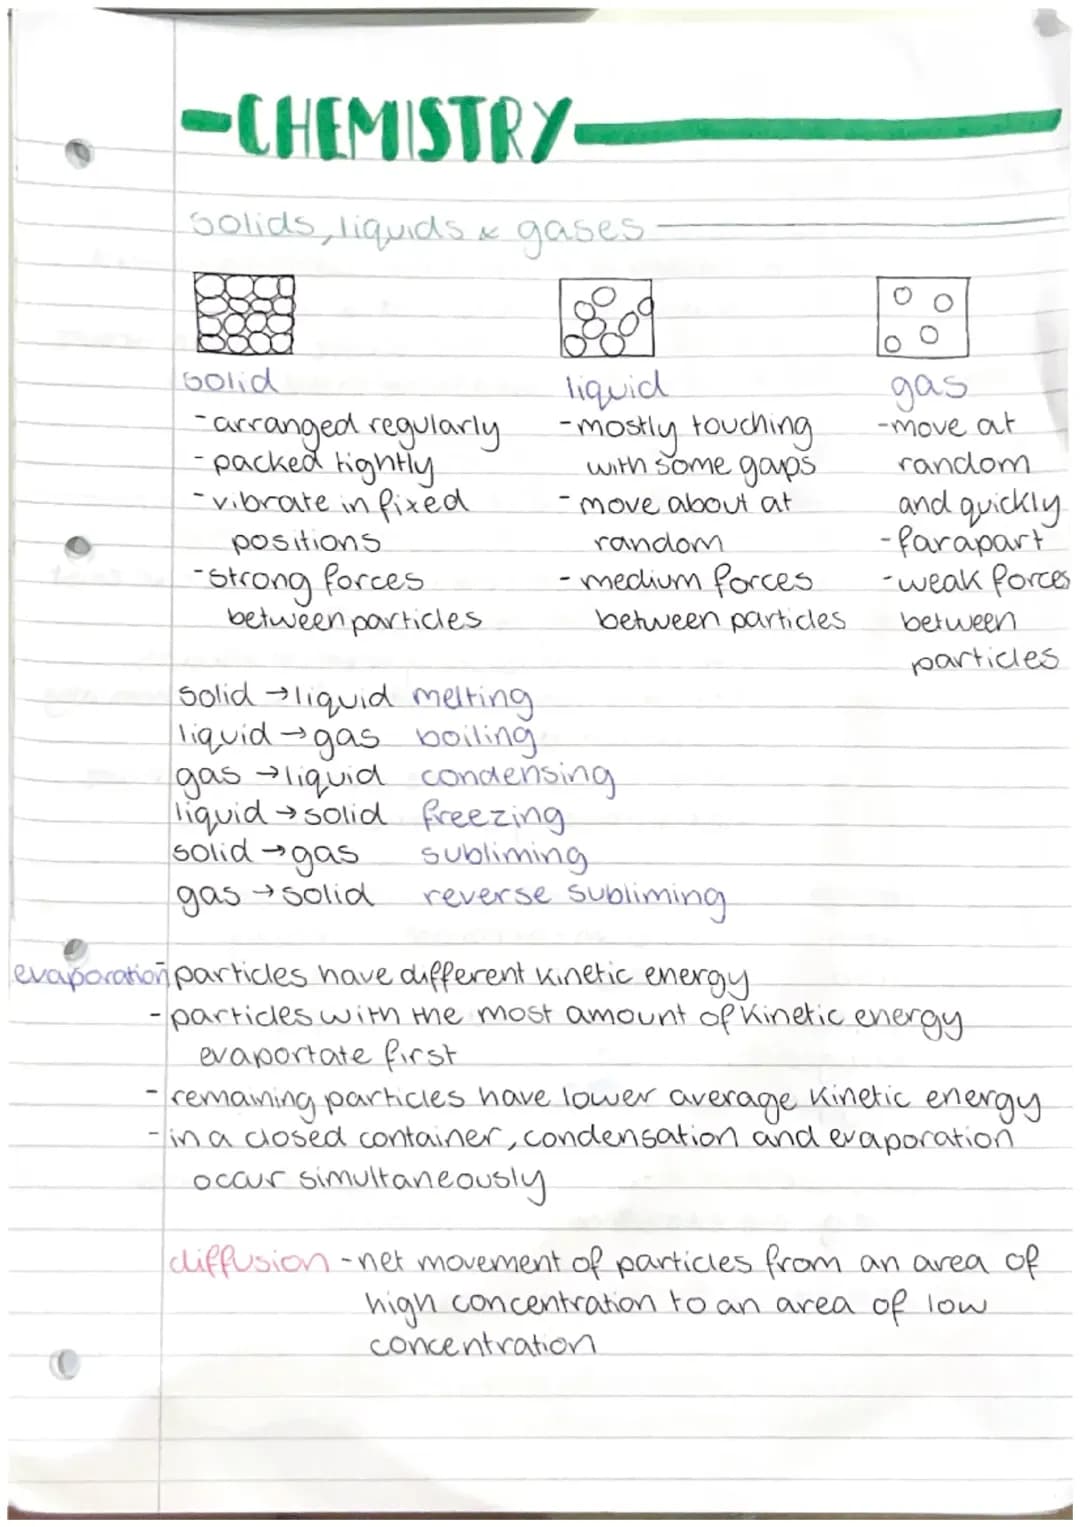 -CHEMISTRY-
solids, liquids & gases
solid
-arranged regularly
-packed tightly
-vibrate in fixed
positions
-strong forces
between particles
liquid
-mostly touching
with some gaps
-move about at
random
-medium forces
between particles
gas
-move at
random
and quickly
-far apart
-weak forces
between
particles
solid → liquid melting
liquid → gas boiling
gas → liquid condensing
liquid → solid freezing
solid → gas subliming
gas → solid reverse subliming
evaporation - particles have different kinetic energy
- particles with the most amount of kinetic energy
evaportate first
- remaining particles have lower average kinetic energy
- in a closed container, condensation and evaporation
occur simultaneously
diffusion - net movement of particles from an area of
high concentration to an area of low
concentration